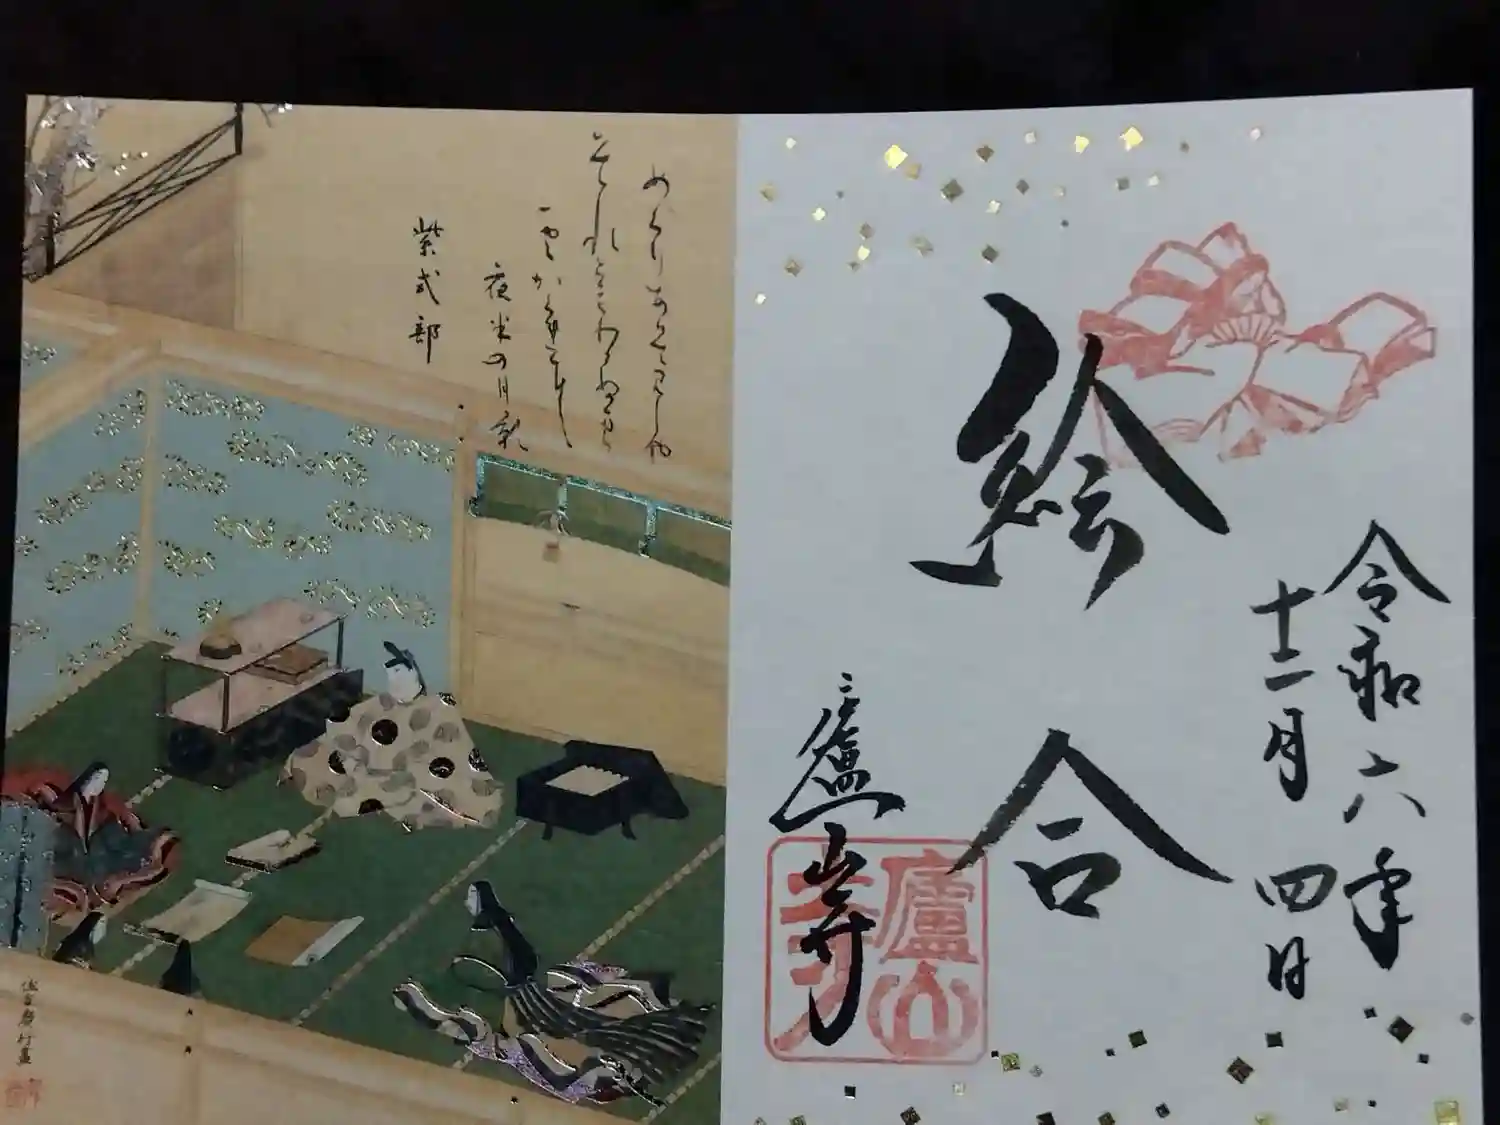 令和六年
十二月四日
絵合
廬山寺
廬山寺
めぐりあひて見しや
それともわかぬまに
雲がくれにし
夜半の月影
紫式部